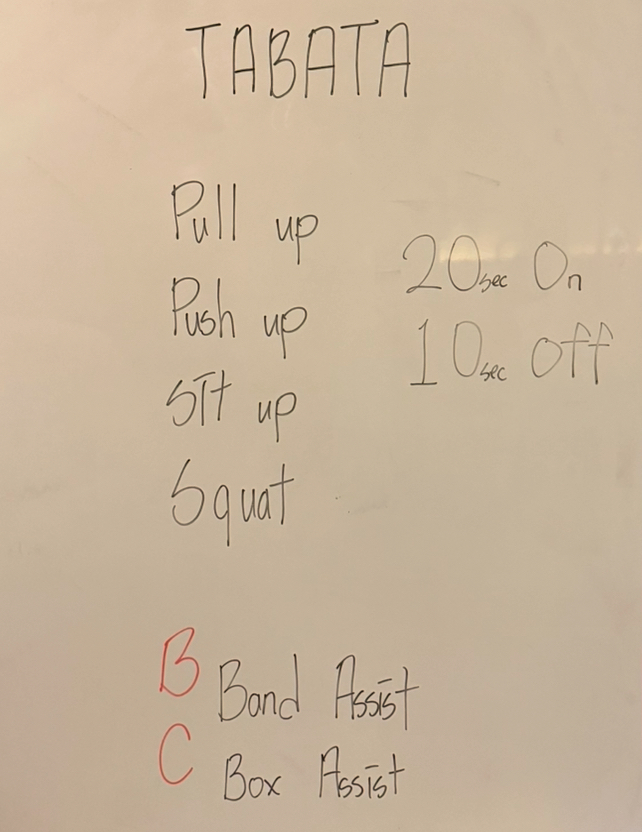 TABATA
Pull up
Push up
Sit up
Squat
20sec On
10sec off
B Band Assist
C Box Assist